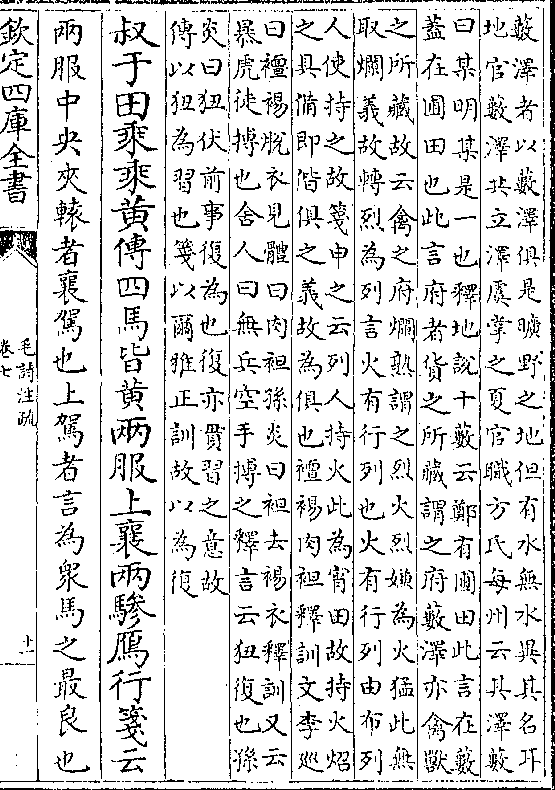 藪澤者以藪澤俱是曠野之地但有水無水異其名耳
地官藪澤共立澤虞掌之夏官職方氏每州云其澤藪
曰某明某是一也釋地說十藪云鄭有圃田此言在藪
蓋在圃田也此言府者貨之所臓謂之府藪澤亦禽獸
之所藏故云禽之府爛熟謂之烈火烈嫌為火猛此無
取爛義故轉烈為列言火有行列也火有行列由布列
人使持之故箋申之云列人持火此為宵田故持火炤
之具備即偕俱之義故為俱也襢裼肉袒釋訓文李廵
曰襢裼脫衣見體曰肉袒孫炎曰袒去裼衣釋訓又云
暴虎徒搏也舍人曰無兵空手搏之釋言云狃復也孫
炎曰狃伏前事復為也復亦貫習之意故
傳以狃為習也箋以爾雅正訓故以為復
叔于田乘乘黃傳四馬皆黃兩服上襄兩驂鴈行箋云
兩服中央夾轅者襄駕也上駕者言為衆馬之最良也
欽定四庫全書
毛詩注疏
卷七
十一